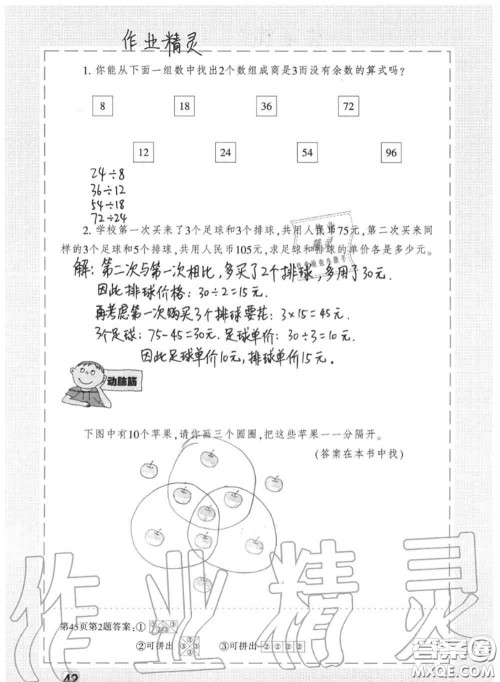 作业精灵
1. 你能从下面一组数中找出2个数组成商是3而没有余数的算式吗?
8 18 36 72
12 24 54 96
24÷8
36÷12
54÷18
72÷24
2. 学校第一次买来了3个足球和3个排球,共用人民币75元,第二次买来同
样的3个足球和5个排球,共用人民币105元,求足球和排球的单价各是多少元。
解:第二次与第一次相比,多买了2个排球,多用了30元.
因此排球价格:30÷2=15元.
再考虑第一次购买3个排球要花:3×15=45元.
3个足球:75-45=30元.足球单价:30÷3=10元.
因此足球单价10元,排球单价15元.
动脑筋
下图中有10个苹果,请你画三个圆圈,把这些苹果一一分隔开。
(答案在本书中找)
第45页第2题答案:①
②可拼出 ③可拼出
42
作业精灵
答案圈
MXQE.COM